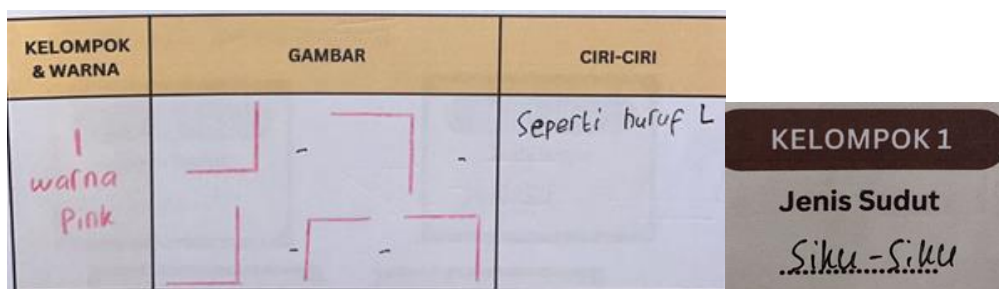 KELOMPOK
& WARNA
GAMBAR
CIRI-CIRI
1
warna
Pink
Seperti huruf L
KELOMPOK 1
Jenis Sudut
Siku-Siku